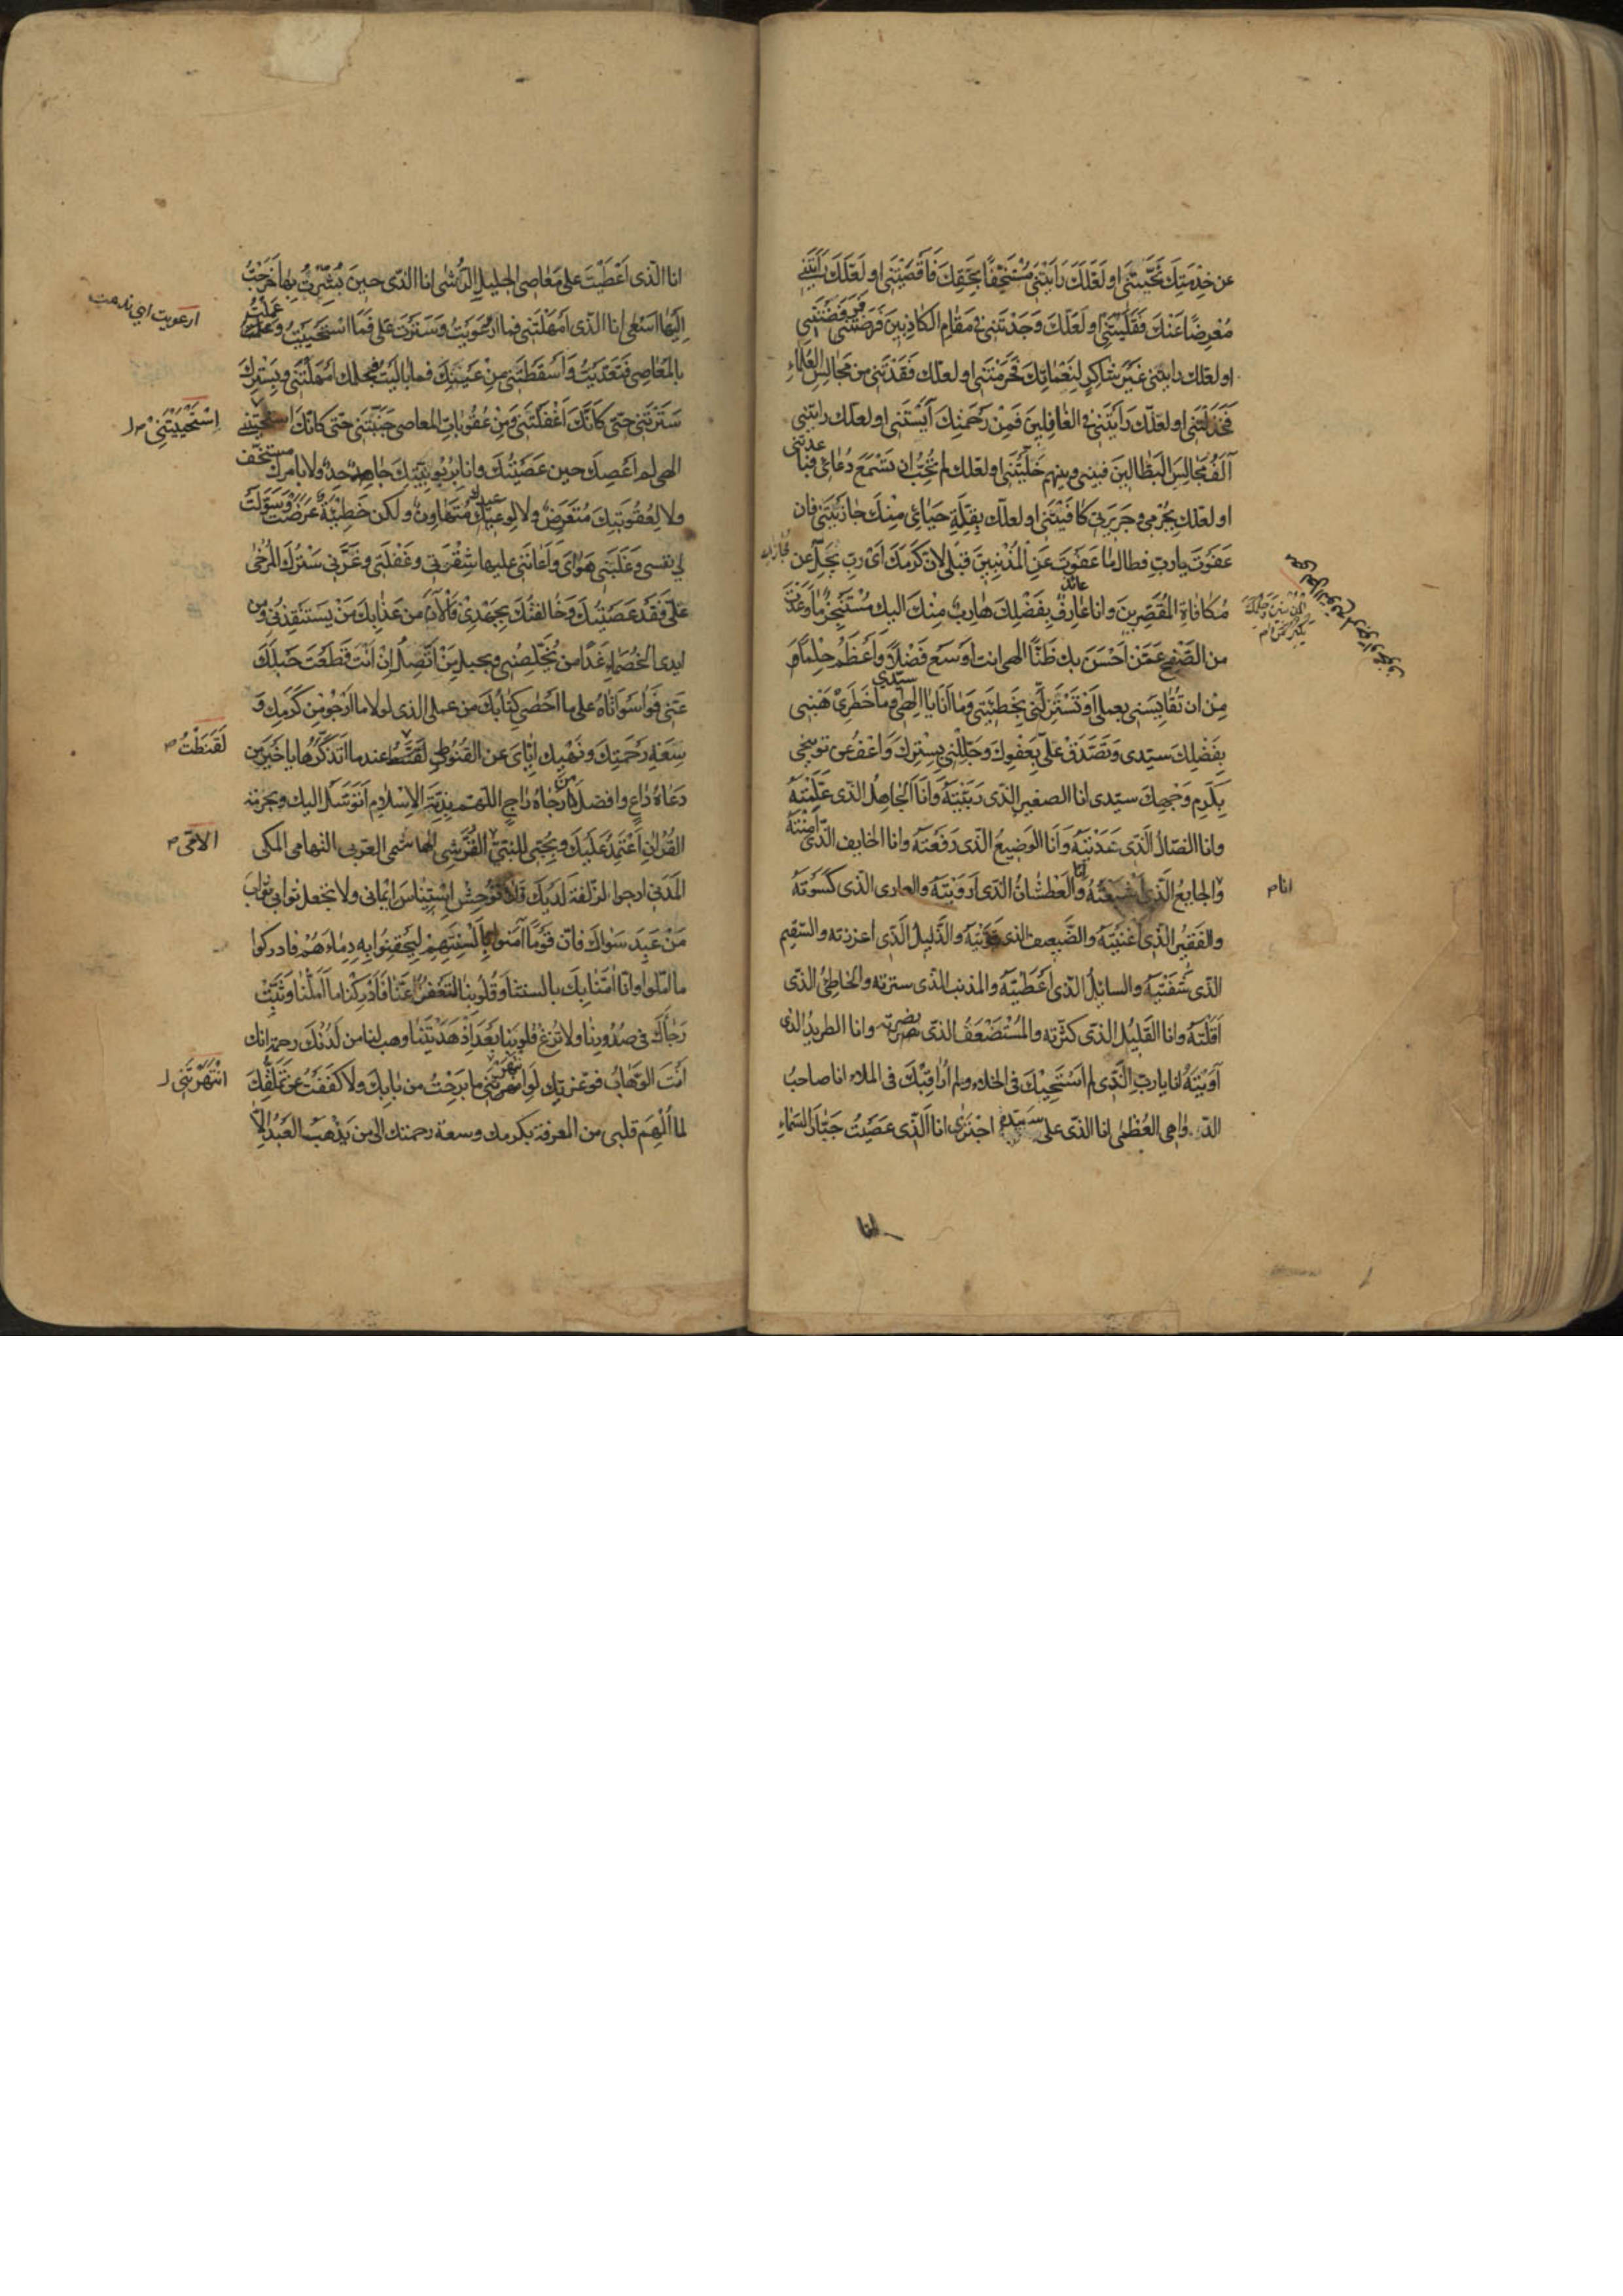 عن خِدْمَتِكَ نَحَّيْتَنى او لَعَلَّكَ رَاَيْتَنى مُسْتَخِفًّا بِحَقِّكَ فَاَقْصَيْتَنى او لَعَلَّكَ رَاَيْتَنى
مُعْرِضًا عَنْكَ فَقَلَيْتَنى او لَعَلَّكَ وَجَدْتَنى فى مَقٰامِ الكَاذِبينَ فَرَفَضْتَنى
او لعلّك رايتنى غَيْرَ شاكِرٍ لِنَعْمٰائِكَ فَحَرَمْتَنى او لعلّك فَقَدْتَنى من مَجٰالِسِ العُلَمٰاءِ
فَخَذَلْتَنى او لعلّك رَاَيْتَنى فى الغٰافِلينَ فَمِنْ رَحْمَتِكَ آيَسْتَنى او لعلّك رايتنى
آلَفُ مَجٰالِسَ البَطّالينَ فبينى وبينهم خَلَّيْتَنى او لعلّك لم تُحِبَّ ان تَسْمَعَ دُعائى فباعدتنى
او لعلّك بِجُرْمى وجَريرَتى كافَيْتَنى او لعلّك بِقِلَّةِ حَيٰائى مِنْكَ جٰازَيْتَنى فان
عَفَوْتَ يا ربّ فطال ما عَفَوْتَ عَنِ المُذْنِبينَ قبلى لانّ كَرَمَكَ اَىْ رَبِّ يَجِلُّ عن
مُكٰافاةِ المُقَصِّرينَ وانا عائذ بِفَضْلِكَ هٰارِبٌ مِنْكَ اليك مُتَنَجِّزٌ مٰا وَعَدْتَ
من الصَّفْحِ عَمَّنْ اَحْسَنَ بك ظَنًّا الهى انت اَوْسَعُ فَضْلًا وَاَعْظَمُ حِلْمًا
مِنْ ان تُقٰايِسَنى بعملى اَوْ تَسْتَزِلَّنى بِخَطيئَتى وَمٰا اَنَا يا سيّدى وما خَطَرى هَبْنى
بِفَضْلِكَ سيّدى وَتَصَدَّقْ عَلَىَّ بِعَفْوِكَ وَجَلِّلْنى بِسِتْرِكَ وَاعْفُ عن توبيخى
بِكَرَمِ وَجْهِكَ سيّدى انا الصغير الّذى رَبَّيْتَهُ وَاَنَا الجٰاهِلُ الّذى عَلَّمْتَهُ
وانا الضّالُّ الَّذى هَدَيْتَهُ وَاَنَا الوَضيعُ الّذى رَفَعْتَهُ وانا الخايف الّذى آمَنْتَهُ
والجايعُ الَّذى اَشْبَعْتَهُ والعَطْشٰانُ الّذى اَرْوَيْتَهُ والعارى الّذى كَسَوْتَهُ
انا م
والفَقيرُ الّذى اَغْنَيْتَهُ والضَّعيف الذى قَوَّيْتَهُ والذَّليلُ الَّذى اعززته والسّقيم
الّذى شَفَيْتَهُ والسائِلُ الّذى اَعْطَيْتَهُ والمذنب الذى سترته والخاطِئُ الّذى
اَقَلْتَهُ وانا القَليلُ الّذى كَثَّرته والمُسْتَضْعَفُ الّذى نصرته وانا الطريدُ الذى
آوَيْتَهُ انا يا ربّ الَّذى لم اَسْتَحْيِكَ فى الخلاء ولم اُرٰاقِبْكَ فى الملاء انا صاحبُ
الدّواهى العُظْمٰى انا الذى على سيّده اجْتَرىٰ انا الَّذى عَصَيْتُ جَبّارَ السَّمٰاءِ
انا
انا الّذى اَعْطَيْتُ على مَعٰاصى الجليل الرُّشٰى انا الّذى حين بُشِّرْتُ بِهٰا خَرَجْتُ
اِلَيْهٰا اَسْعٰى انا الّذى اَمْهَلْتَنى فما ارْعَوَيْتُ وَسَتَرْتَ عَلَىَّ فَمَا اسْتَحْيَيْتُ وَعَمِلْتُ
ارعويت اى ندمت
بالمَعٰاصى فَتَعَدَّيْتُ وَاَسْقَطْتَنى مِنْ عَيْنِكَ فما بٰالَيْتُ فبحلمك اَمْهَلْتَنى وبِسِتْرِكَ
سَتَرْتَنى حتى كَاَنَّكَ اَغْفَلْتَنى وَمِنْ عُقُوبٰاتِ المعاصى جَنَّبْتَنى حَتى كانّكَ استحييتنى
اِسْتَحْيَيْتَنِىْ
الهى لم اَعْصِكَ حين عَصَيْتُكَ وانا بِرُبُوبِيَّتِكَ جٰاحِدٌ ولا بامرك مستخف
ولا لِعُقُوبَتِكَ مُتَعَرِّضٌ ولا لوعيدك مُتَهٰاوِنٌ ولكن خَطيئَةٌ عَرَضَتْ وَسَوَّلَتْ
لى نفسى وَغَلَبَنى هَوٰاىَ وَاَعٰانَنى عليها شِقْوَتى وغَرَّنى سِتْرُكَ المُرْخٰى
عَلَىَّ فَقَدْ عَصَيْتُكَ وَخٰالَفْتُكَ بِجَهْدى فَالْآنَ من عَذٰابِكَ مَنْ يَسْتَنْقِذُنى ومن
ايدى الخُصَمٰاءِ غَدًا من يُخَلِّصُنى وبِحَبْلِ مَنْ اَتَّصِلُ اِنْ اَنْتَ قَطَعْتَ حَبْلَكَ
عَنّى فَوٰاسَوْاَتٰاهُ على ما اَحْصٰى كِتٰابُكَ من عملى الذى لولا ما اَرْجُو مِن كَرَمِكَ وَ
سِعَةِ رَحْمَتِكَ ونَهْيِكَ اِيّٰاىَ عن القُنُوطِ لَقَنَطْتُ عند ما اَتَذَكَّرُها يا خَيْرَ من
لَقَنَطْتُ
دَعٰاهُ دٰاعٍ وافضل من رَجٰاهُ رٰاجٍ اللّهم بِذِمَّةِ الاِسْلٰامِ اَتَوَسَّلُ اليك وبحرمة
القُرْآنِ اَعْتَمِدُ عَلَيْكَ وبِحُبّى للنبىّ القُرَشى الهاشمى العَرَبى التهامى المكى
الامّى
المَدَنى ارجوا الزلفة لَدَيْكَ فَلٰا تُوحِشِ اسْتينٰاسَ ايمانى ولا تجعل ثوابى ثوابَ
مَنْ عَبَدَ سِوٰاكَ فانّ قَوْمًا آمَنُوا بِاَلْسِنَتِهِمْ لِيَحْقِنُوا بِهِ دِمٰاءَهُمْ فادركوا
ما امّلوا وانّا آمَنّٰا بِكَ بالسنتنا وَقُلُوبِنٰا لِتَعْفُوَ عَنّٰا فَاَدْرِكْنٰا ما اَمَّلْنٰا وَثَبِّتْ
رَجٰاءَكَ فى صُدُورِنٰا ولا تُزِغْ قُلُوبَنٰا بَعْدَ اِذْ هَدَيْتَنٰا وهب لنا من لَدُنْكَ رحمة انك
اَنْتَ الوَهّٰابُ فوعزتك لَوِ انتهرتنى ما بَرِحْتُ من بٰابِكَ ولا كَفَفْتُ عن تَمَلُّقِكَ
انْتَهَرْتَنى
لما اُلْهِمَ قلبى من المعرفة بكرمك وسعة رحمتك الى من يَذْهَبُ العَبْدُ اِلّٰا